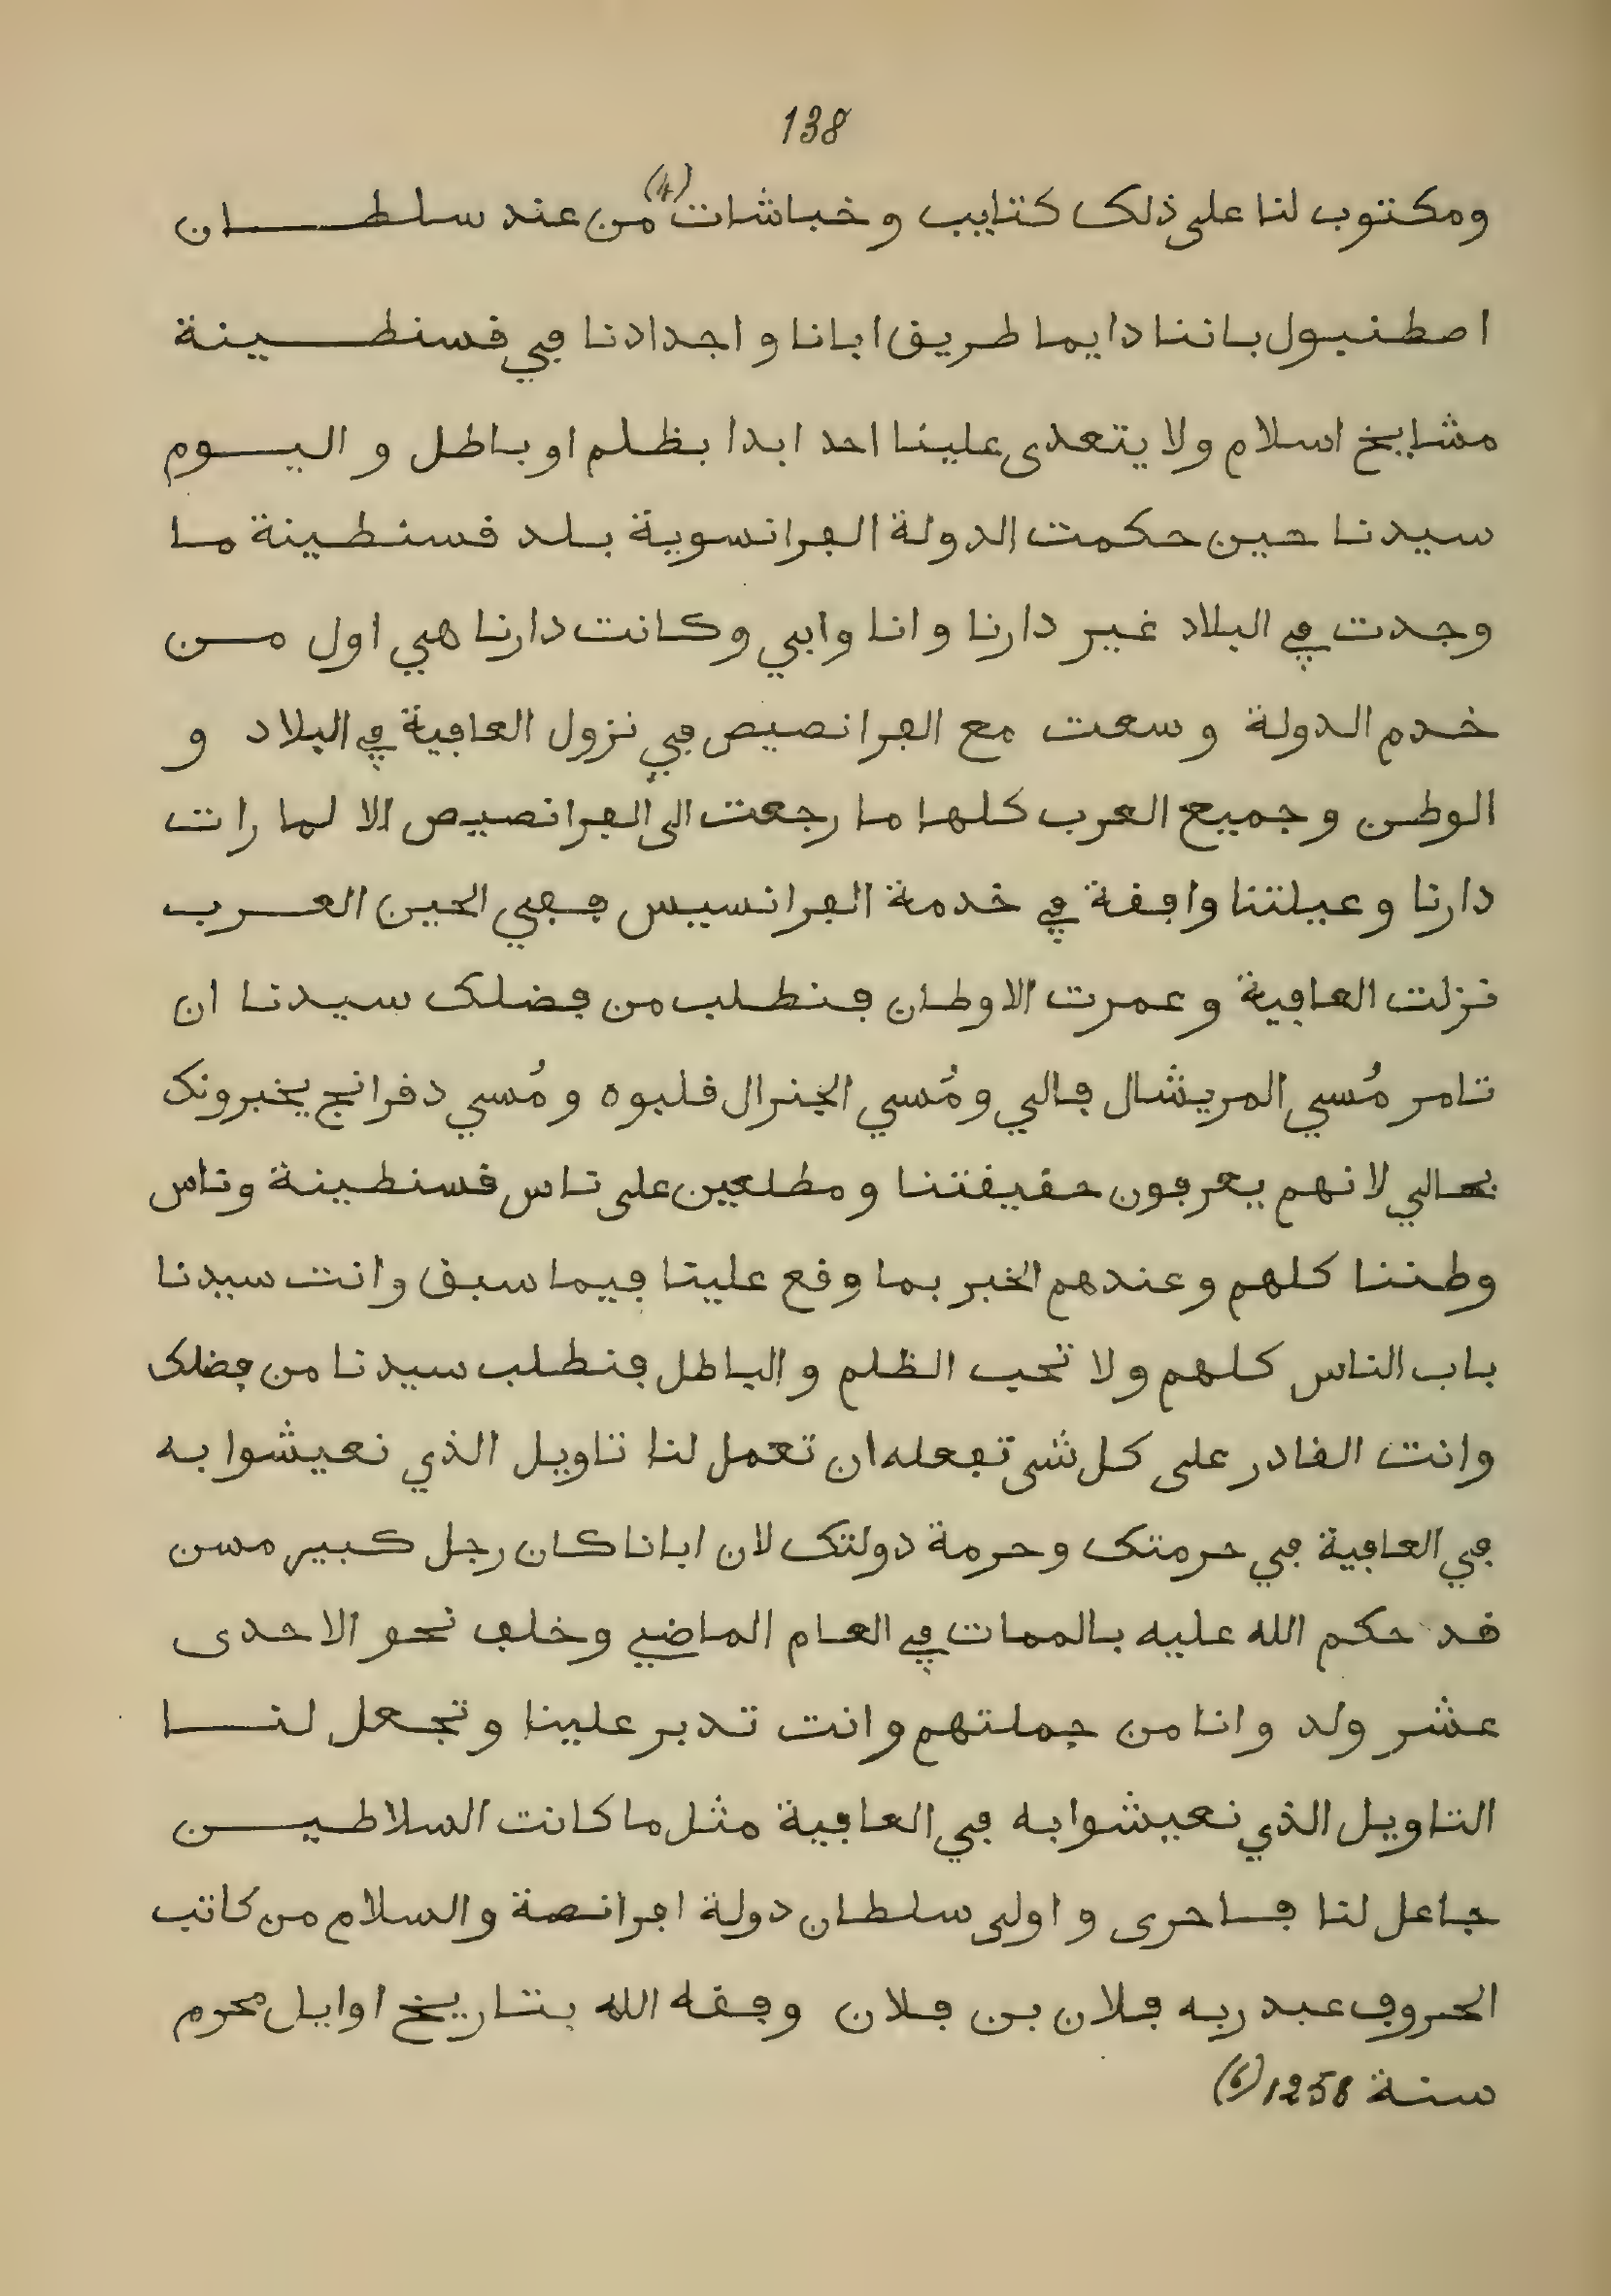 138
ومكتوب لنا على ذلك كتايب وخباشات (4) من عند سلطان
اصطنبول باننا دايما طريق ابانا و اجدادنا في قسنطينة
مشايخ اسلام ولا يتعدى علينا احد ابدا بظلم او باطل و اليوم
سيدنا حين حكمت الدولة الفرانسوية بلد قسنطينة ما
وجدت في البلاد غير دارنا و انا وابي وكانت دارنا هي اول من
خدم الدولة و سعت مع الفرانصيص في نزول العافية في البلاد و
الوطن و جميع العرب كلها ما رجعت الى الفرانصيص الا لما رات
دارنا و عيلتنا واقفة في خدمة الفرانسيس ففي الحين العرب
نزلت العافية و عمرت الاوطان فنطلب من فضلك سيدنا ان
تامر مُسي المريشال فالي و مُسي الجنرال قلبوه و مُسي دقرانج يخبرونك
بحالي لانهم يعرفون حقيقتنا و مطلعين على ناس قسنطينة وناس
وطننا كلهم و عندهم الخبر بما وقع علينا فيما سبق وانت سيدنا
باب الناس كلهم و لا تحب الظلم و الباطل فنطلب سيدنا من فضلك
وانت القادر على كل شى تفعله ان تعمل لنا تاويل الذي نعيشوا به
في العافية في حرمتك وحرمة دولتك لان ابانا كان رجل كبير مسن
قد حكم الله عليه بالممات في العام الماضي وخلف نحو الاحدى
عشر ولد وانا من جملتهم وانت تدبر علينا وتجعل لنا
التاويل الذي نعيشوا به في العافية مثل ما كانت السلاطين
جاعل لنا فاحرى و اولى سلطان دولة افرانصة والسلام من كاتب
الحروف عبد ربه فلان بن فلان وفقه الله بتاريخ اوايل محرم
سنة 1258 (6)